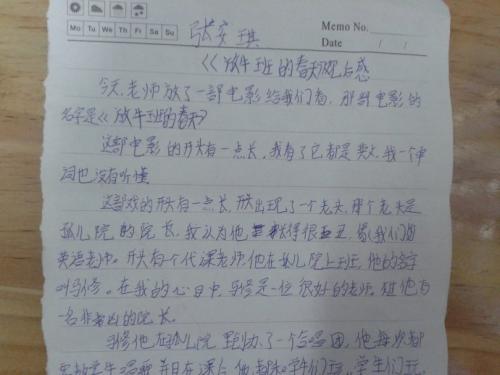 Mo Tu We Th Fr Sa Su
Memo No.
Date / /
张 琪
《放牛班的春天》观后感
今天,老师放了一部电影给我们看,那部电影的
名字是《放牛班的春天》
这部电影的开头有一点长,我看了它都是英文,我一个单
词也没有听懂
这部戏的开头有一点长,开头出现了一个老头,那个老头是
孤儿院的院长,我认为他长得很丑,像我们的
英语老中。开头有个代课老师他在孤儿院上班,他的名字
叫马修。在我的心目中,马修是一位很好的老师。但他有
一名非常凶的院长。
马修他在孤儿院里办了一个合唱团,他每次都
学生唱歌并且在课后他都和学生们玩,学生们玩